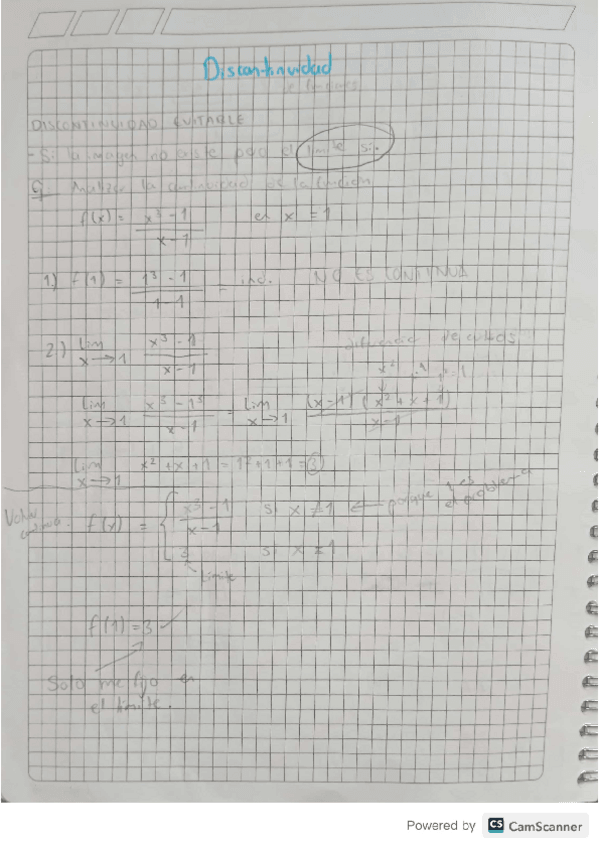 Discontinuidad
DISCONTINUIDAD EVITABLE
- Si la imagen no existe pero el límite si.
Ej: Analizar la continuidad de la función
f(x) = x³ - 1 / x - 1 en x = 1
1.) f(1) = 1³ - 1 / 1 - 1 = ind. NO ES CONTINUA
2.) Lim x→1 x³ - 1 / x - 1 diferencia de cubos
Lim x→1 x³ - 1³ / x - 1 = Lim x→1 (x - 1) (x² + x + 1) / x - 1
Lim x→1 x² + x + 1 = 1² + 1 + 1 = 3
Volver continua. f(x) = { x³ - 1 / x - 1 si x ≠ 1 ← porque 1 es el problema
3 si x = 1
Límite
f(1) = 3 ✓
Solo me fijo en
el límite.
Powered by CS CamScanner